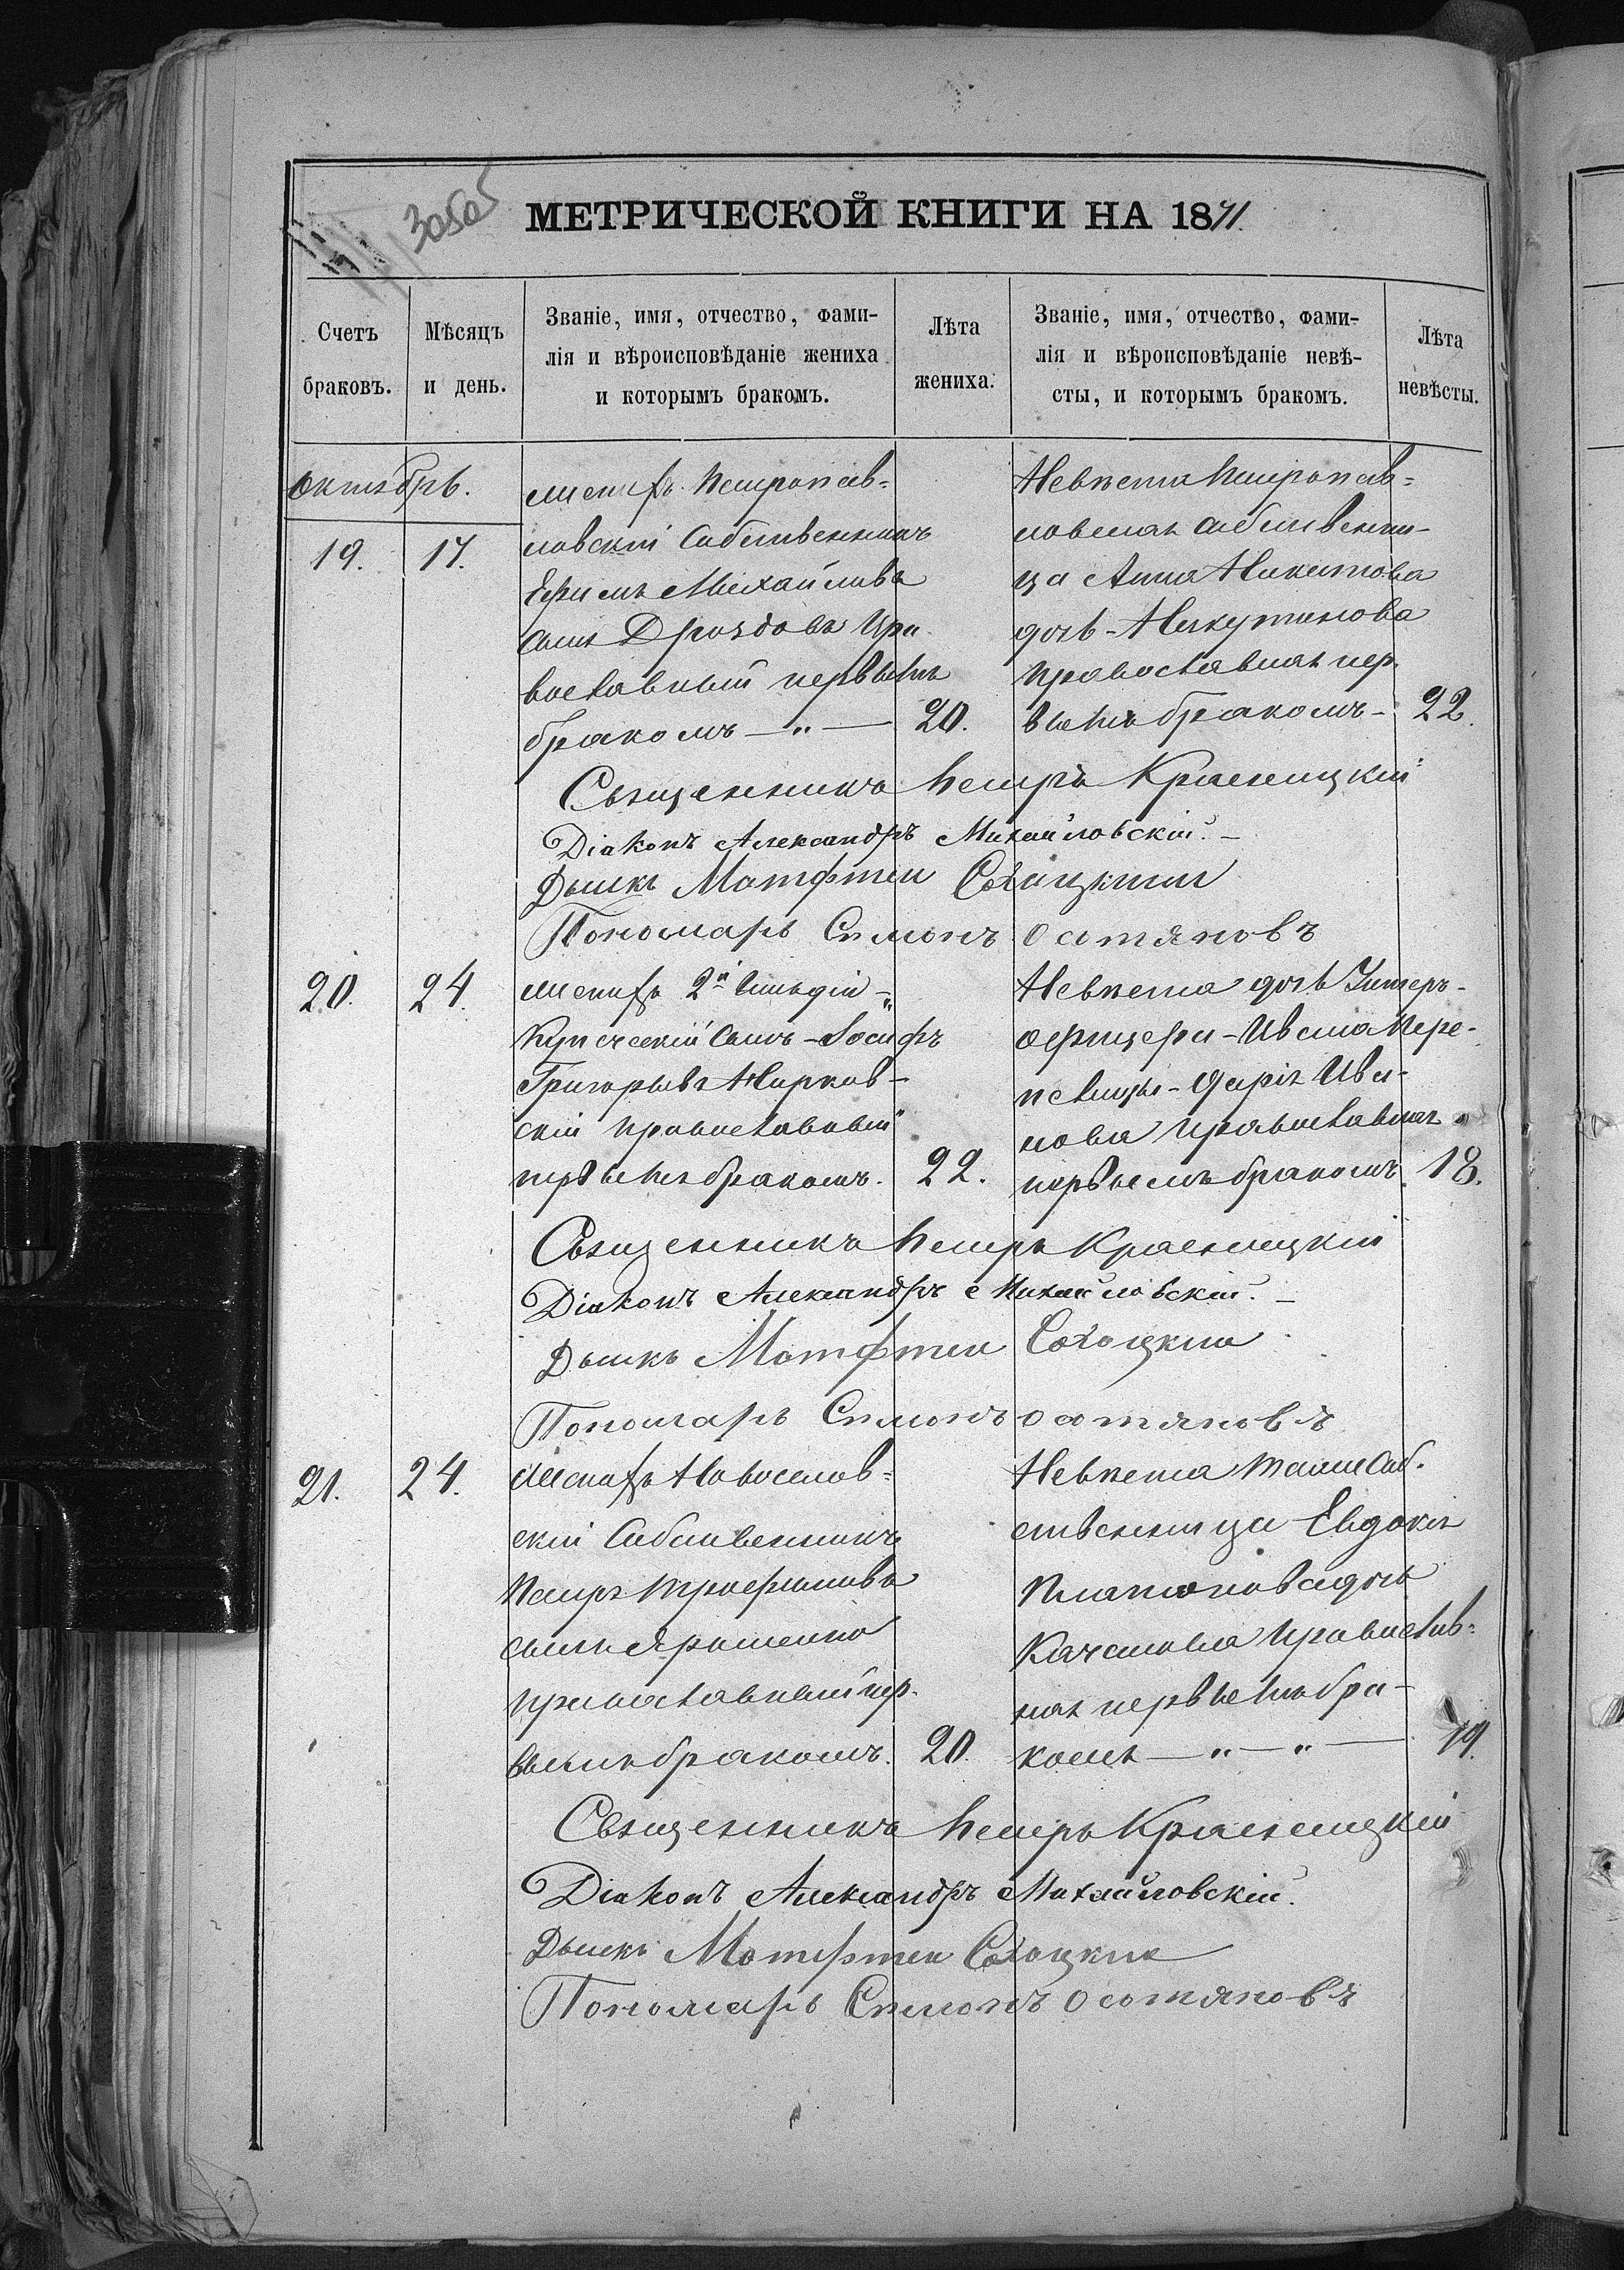 305об
МЕТРИЧЕСКОЙ КНИГИ НА 1871.
Счетъ браковъ.
Мѣсяцъ и день.
Званіе, имя, отчество, фами-
лія и вѣроисповѣданіе жениха
и которымъ бракомъ.
Лѣта жениха.
Званіе, имя, отчество, фами-
лія и вѣроисповѣданіе невѣ-
сты, и которымъ бракомъ.
Лѣта невѣсты.
Октябрь.
19. 17.
Женихъ Петропав=
ловскій Собственникъ
Ефимъ Михайловъ
сынъ Дроздовъ Пра
вославный первымъ
бракомъ — „ — 20.
Невѣста Петропав=
ловская собственни-
ца Анна Никитова
дочь
православная пер
вымъ бракомъ - 22.
Священникъ Петръ Красницкій
Діаконъ Александръ Михайловскій. —
Дьякъ Матфей Сохацкий
Пономарь Симонъ Остяновъ
20. 24.
Женихъ 2й Гильдіи -
Купеческій сынъ - Іосифъ
Григорьевъ
скій православный
первымъ бракомъ. 22.
Невѣста дочь Унтеръ-
офицера - Ивана Пере-
Дарія Ива-
нова православная
первымъ бракомъ. 18.
Священникъ Петръ Красницкій
Діаконъ Александръ Михайловскій. —
Дьякъ Матфей Сохацкий
Пономарь Симонъ Остяновъ
21. 24.
Женихъ Новоселов=
скій Собственникъ
Петръ Трофимовъ
сынъ Ярошенко
православный пер
вымъ бракомъ. 20.
Невѣста тоже Соб.
ственница Евдокія
Платонова дочь
православ=
ная первымъ бра-
комъ — „ — „ — 19.
Священникъ Петръ Красницкій
Діаконъ Александръ Михайловскій.
Дьякъ Матфей Сохацкий
Пономарь Симонъ Остяновъ